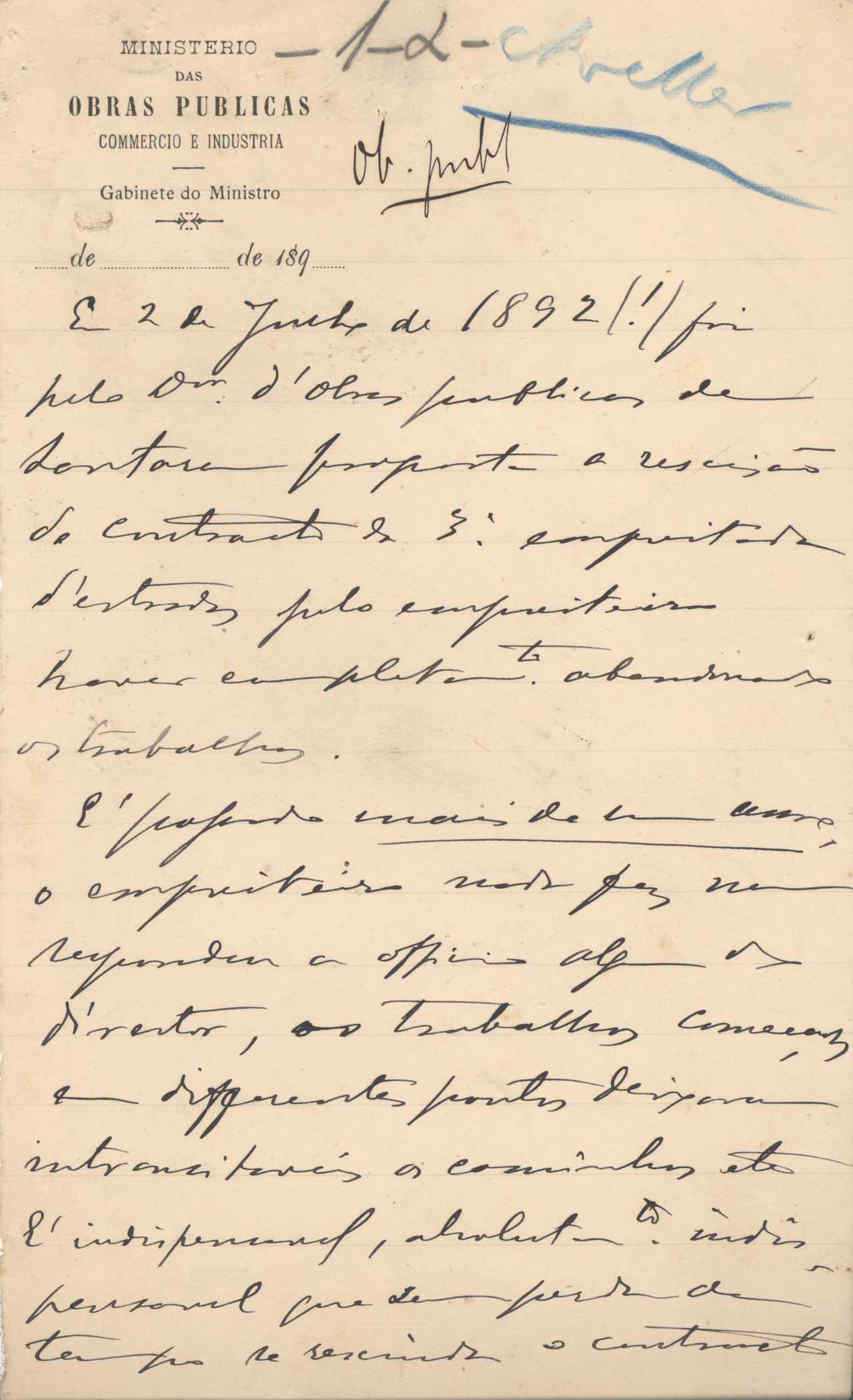 MINISTERIO
DAS
OBRAS PUBLICAS
COMMERCIO E INDUSTRIA
Gabinete do Ministro
Ob. publ
de de 189
Em 2 de Junho de 1892 (!) foi
pelo Dor. d'Obras publicas de
Santarem proposta a rescisão
do contracto da 3ª. empreitada
d'estradas pelo empreiteiro
haver completamte. abandonado
os trabalhos.
É passado mais de um anno,
o empreiteiro nada fez nem
respondeu a officio algum do
director, os trabalhos começados
em differentes pontos deixaram
intransitaveis os caminhos etc
É indispensavel, absolutamte. indis-
pensavel que sem perda de
tempo se rescinda o contracto